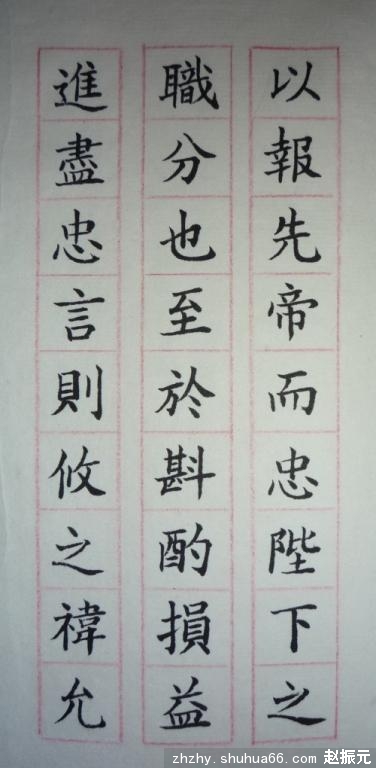 以報先帝而忠陛下之
職分也至於斟酌損益
進盡忠言則攸之禕允
zhzhy.shuhua66.com 赵振元